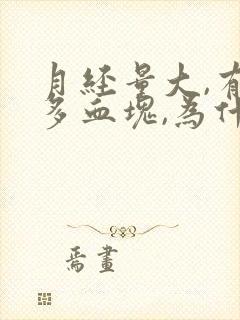 月経量大,有
多血塊,為什
焉畫